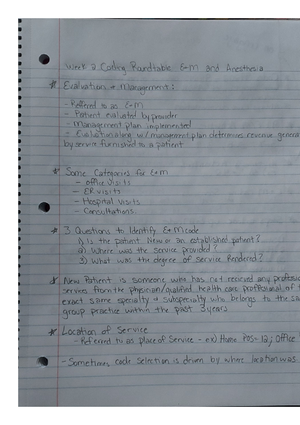 Week 2 Coding Roundtable E+M and Anesthesia
* Evaluation + Management:
- Referred to as E+M
- Patient evaluated by provider
- Management plan implemented
- Evaluation along w/management plan determines revenue genera
by service furnished to a patient
* Some Categories for E+M
- Office Visits
- ER visits
- Hospital visits
- Consultations
* 3 Questions to Identify E+M code
1) Is the patient New or an established patient?
2) Where was the service provided?
3) What was the degree of service Rendered?
* New Patient is someone who has not recived any profess
services from the physician/qualified health care proffesional, of
exact same specialty + subspecialty who belongs to the sa
group practice within the past 3 years
* Location of Service
- Referred to as place of Service - ex) Home POS-12; Office
- Sometimes code selection is driven by where location was